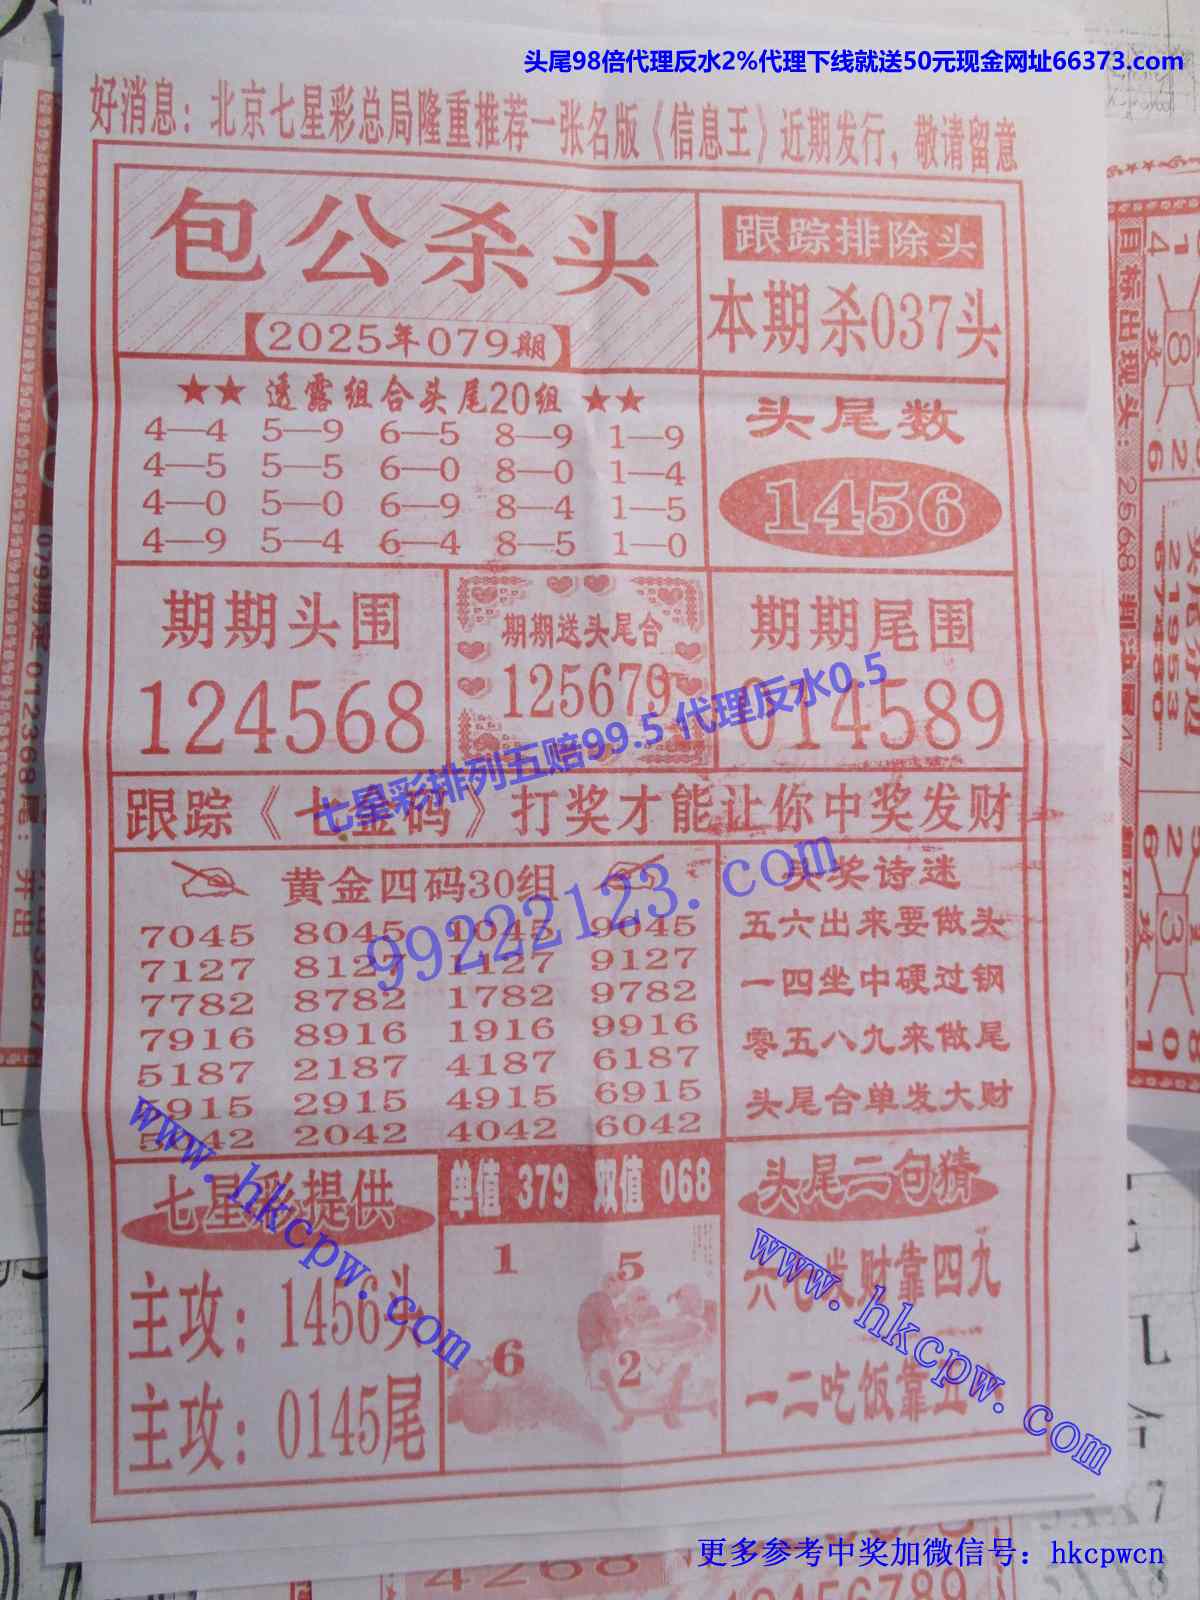 头尾98倍代理反水2%代理下线就送50元现金网址66373.com
好消息：北京七星彩总局隆重推荐一张名版《信息王》近期发行，敬请留意
包公杀头
2025年079期
跟踪排除头
本期杀037头
★★ 透露组合头尾20组 ★★
4—4 5—9 6—5 8—9 1—9
4—5 5—5 6—0 8—0 1—4
4—0 5—0 6—9 8—4 1—5
4—9 5—4 6—4 8—5 1—0
头尾数
1456
期期头围
124568
期期送头尾合
125679
期期尾围
014589
七星彩排列五赔99.5 代理反水0.5
跟踪《七金码》打奖才能让你中奖发财
黄金四码30组
7045 8045 1045 9045
7127 8127 1127 9127
7782 8782 1782 9782
7916 8916 1916 9916
5187 2187 4187 6187
5915 2915 4915 6915
5042 2042 4042 6042
99222123.com
头奖诗迷
五六出来要做头
一四坐中硬过钢
零五八九来做尾
头尾合单发大财
七星彩提供
主攻：1456头
主攻：0145尾
www.hkcpw.com
单值 379 双值 068
1 5
6 2
头尾二句猜
六七发财靠四九
一二吃饭靠五
www.hkcpw.com
更多参考中奖加微信号：hkcpwcn
目标出现头：2568
079期
012368尾